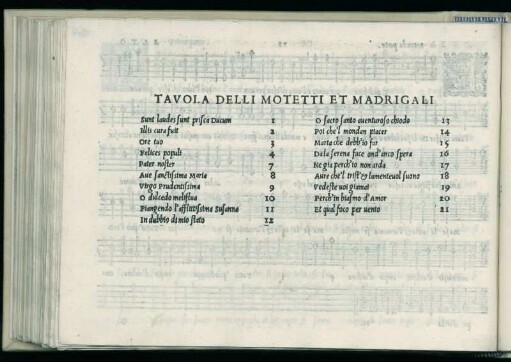 TAVOLA DELLI MOTETTI ET MADRIGALI
Sunt laudes sunt prisca Ducum 1
Illis cura fuit 2
Ore tuo 3
Felices populi 4
Pater noster 7
Aue sanctissima Maria 8
Virgo Prudentissima 9
O dulcedo meliflua 10
Piangendo l'afflitissima Susanna 11
In dubbio di mio stato 12
O sacro santo auenturoso chiodo 13
Poi che'l mondan piacer 14
Marta che debb'io far 15
Dala serena face ond'arco spera 16
Ne gia perch'io non arda 17
Aure che'l trist'et lamenteuol suono 18
Vedeste uoi giamai 19
Perch'in biasmo d'Amor 20
Et qual foco per uento 21